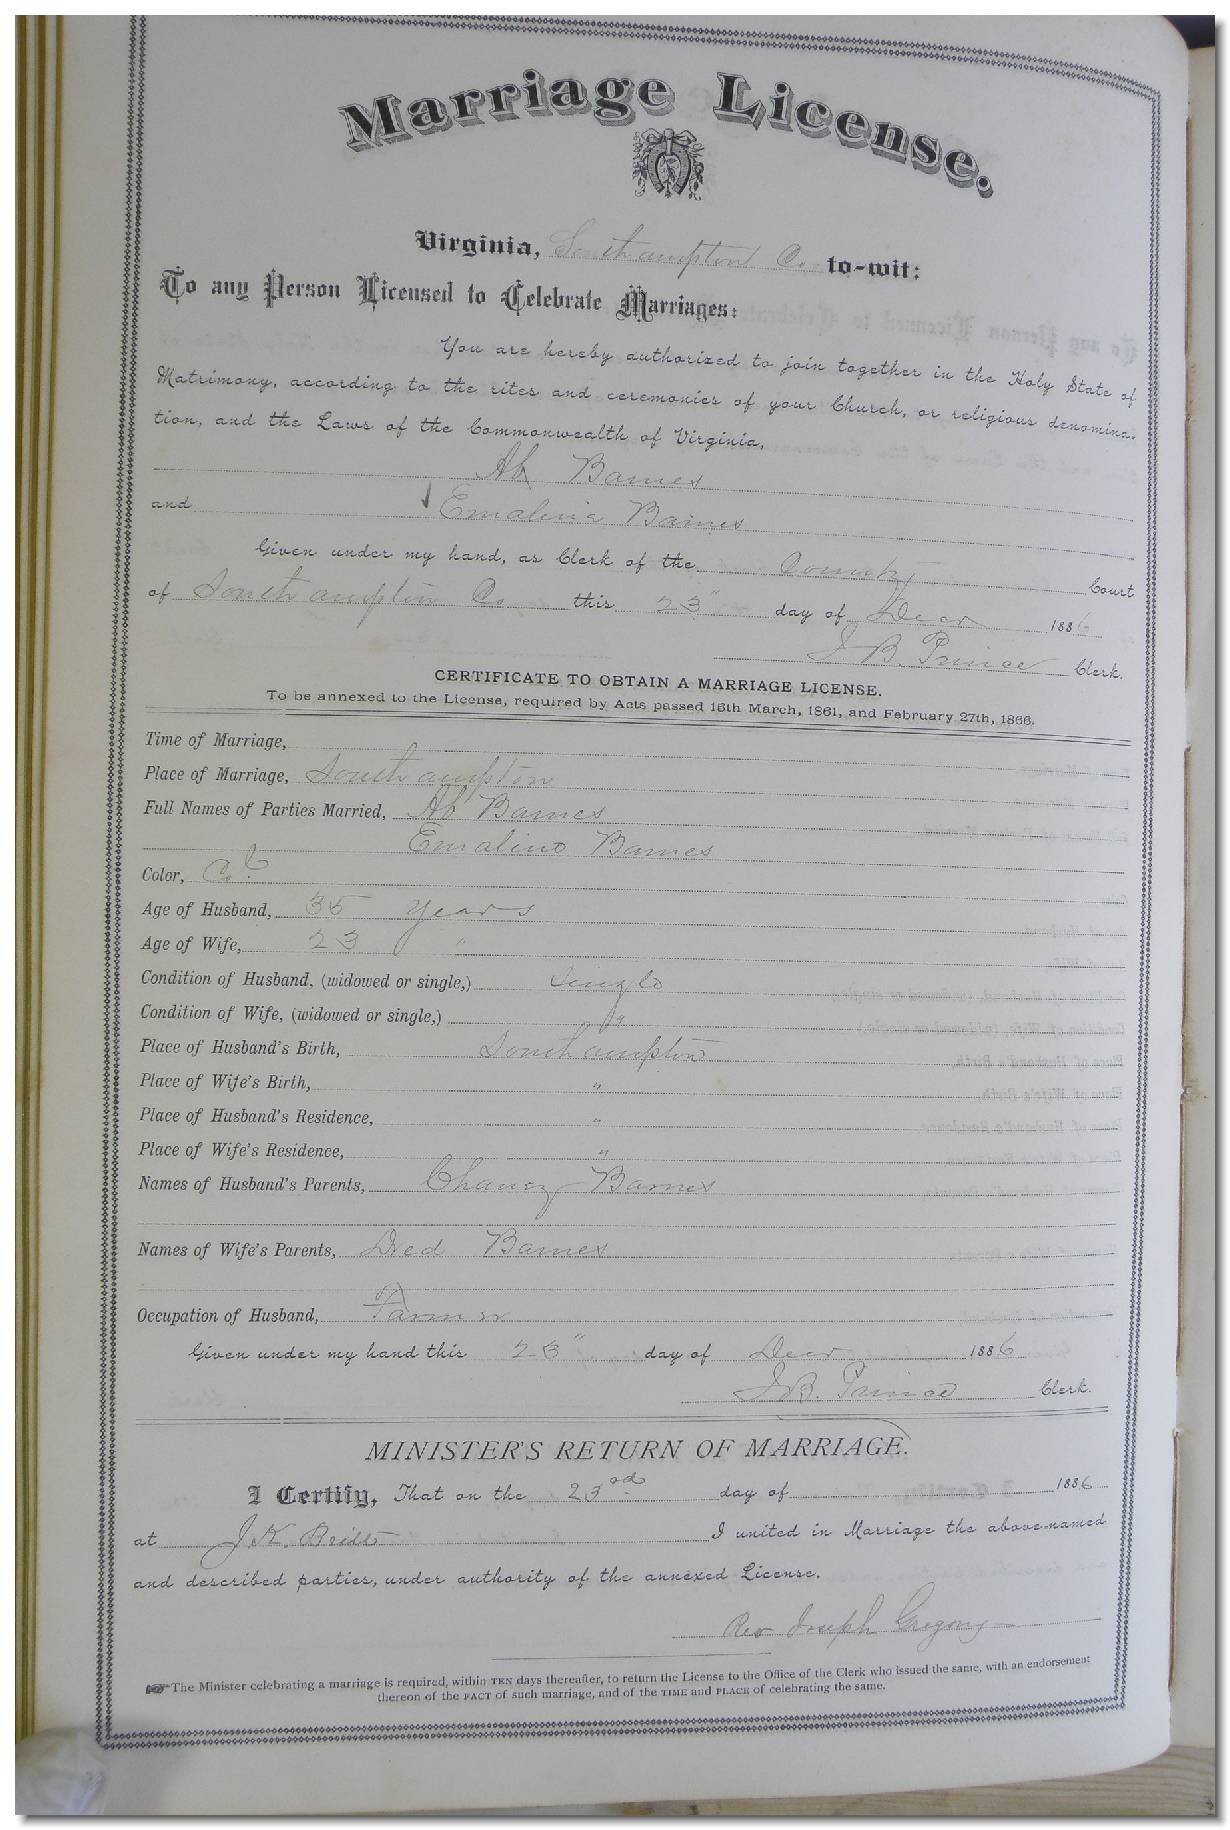 Marriage License.
Virginia, Southampton Co to-wit:
To any Person Licensed to Celebrate Marriages:
You are hereby authorized to join together in the Holy State of
Matrimony, according to the rites and ceremonies of your Church, or religious denomina-
tion, and the Laws of the Commonwealth of Virginia,
Ab Barnes
and Emaline Barnes
Given under my hand, as Clerk of the County Court
of Southampton Co this 23" day of Decr 1886
J B. Prince Clerk.
CERTIFICATE TO OBTAIN A MARRIAGE LICENSE.
To be annexed to the License, required by Acts passed 16th March, 1861, and February 27th, 1866.
Time of Marriage,
Place of Marriage, Southampton
Full Names of Parties Married, Ab Barnes
Emaline Barnes
Color, Col
Age of Husband, 35 years
Age of Wife, 23 "
Condition of Husband, (widowed or single,) Single
Condition of Wife, (widowed or single,) "
Place of Husband's Birth, Southampton
Place of Wife's Birth, "
Place of Husband's Residence, "
Place of Wife's Residence, "
Names of Husband's Parents, Chaney Barnes
Names of Wife's Parents, Dred Barnes
Occupation of Husband, Farmer
Given under my hand this 23" day of Decr 1886
J B. Prince Clerk.
MINISTER'S RETURN OF MARRIAGE.
I Certify, That on the 23rd day of 1886
at J. K. Britt I united in Marriage the above-named
and described parties, under authority of the annexed License.
Rev Joseph Gregory
The Minister celebrating a marriage is required, within TEN days thereafter, to return the License to the Office of the Clerk who issued the same, with an endorsement
thereon of the FACT of such marriage, and of the TIME and PLACE of celebrating the same.